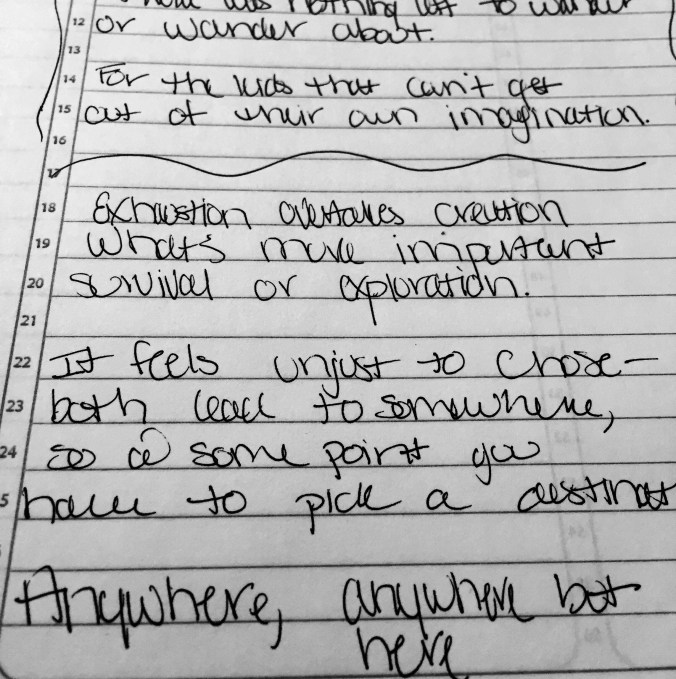 was nothing left to wander
12 or wander about.
13
14 For the kids that can't get
15 out of their own imagination.
16
17
18 Exhaustion overtakes creation
19 What's more important
20 survival or exploration.
21
22 It feels unjust to chose-
23 both lead to somewhere,
24 so @ some point you
5 have to pick a destinat
Anywhere, anywhere but
here